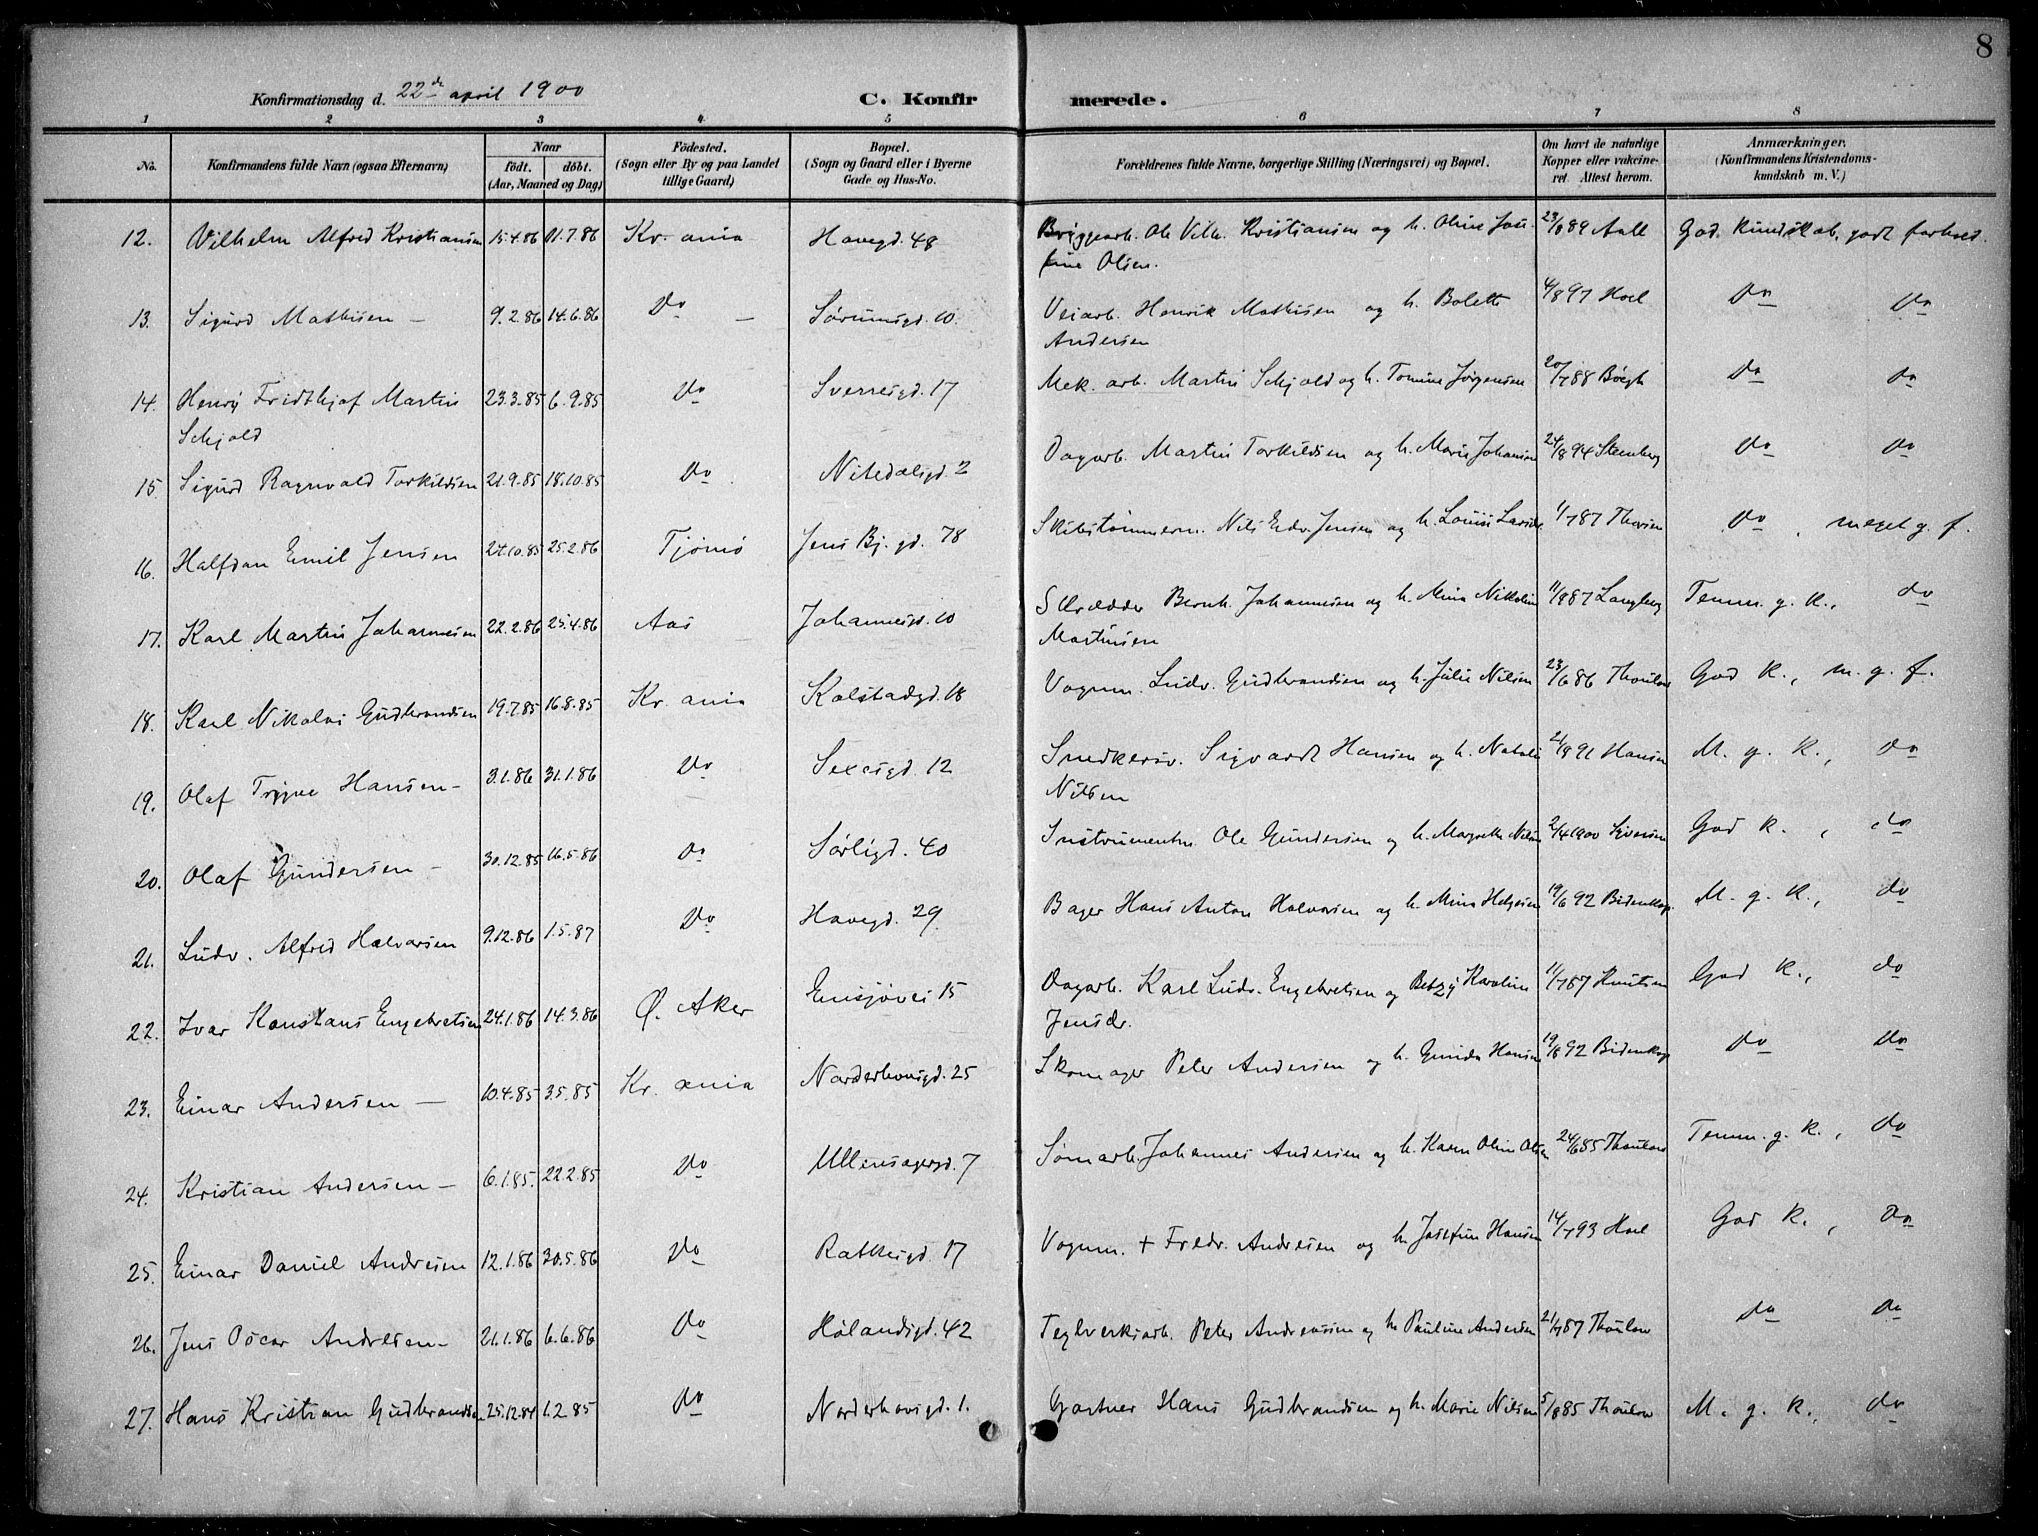 8
Konfirmationsdag d. 22de april 1900 C. Konfirmerede.
1 2 3 4 5 6 7 8
No. Konfirmandens fulde Navn (ogsaa Efternavn) Naar födt. döbt. (Aar, Maaned og Dag) Födested. (Sogn eller By og paa Landet tillige Gaard) Bopæl. (Sogn og Gaard eller i Byerne Gade og Hus-No. Forældrenes fulde Navne, borgerlige Stilling (Næringsvei) og Bopæl. Om havt de naturlige Kopper eller vakcineret. Attest herom. Anmærkninger. (Konfirmandens Kristendomskundskab m. V.)
12. Vilhelm Alfred Kristiansen 15.4.86 11.7.86 Kr.ania Havegd. 48 Bryggearb. Ole Vilh. Kristiansen og h. Oline Josefine Olsen. 23/8 89 Aall God kundskab, godt forhold.
13. Sigurd Mathisen — 9.2.86 14.6.86 Do — Sörumsgd. 10. Veiarb. Henrik Mathisen og h. Bolette Andersen 4/8 97 Hoel Do Do
14. Henry Fridthjof Martin Schjold 23.3.85 6.9.85 Do Sverresgd. 17 Mek. arb. Martin Schjold og h. Tomine Jørgensen 20/7 88 Bøgh Do Do
15 Sigurd Ragnvald Torkildsen 21.9.85 18.10.85 Do Nitedalsgd. 2 Dagarb. Martin Torkildsen og h. Marie Johansen 24/8 94 Steenberg Do Do
16. Halfdan Emil Jensen 27.10.85 25.2.86 Tjömö Jens Bj. gd. 78 Skibstömmerm. Nils Edv. Jensen og h. Louise 1/7 87 Do, meget g. f.
17. Karl Martin Johannesen 22.2.86 25.4.86 Aas Johannesgd. 10 Skrædder Bernh. Johannesen og h. Mina Nikoline Martinsen 11/8 87 Langberg Temm. g. k., Do
18. Karl Nikolai Gudbrandsen 19.7.85 16.8.85 Kr. ania Kolstadgd. 18 Vognm. Ludv. Gudbrandsen og h. Julie Nilsen 23/6 86 Thoulow God k., m. g. f.
19. Olaf Trygve Hansen – 3.1.86 31.1.86 Do Sexesgd. 12 Snedkersv. Sigvardt Hansen og h. Natalie Nilsen 21/8 91 Hansen M. g. k., Do
20. Olaf Gundersen – 30.12.85 16.5.86 Do Sørligd. 40 Instrumentm. Ole Gundersen og h. Margrethe Nilsen 2/4 1900 Syversen God k., do
21. Ludv. Alfred Halvorsen 9.12.86 1.5.87 Do Havegd. 29 Bager Hans Anton Halvorsen og h. Mina Helgesen 19/6 92 Bidenkap M. g. k., do
22. Ivar Konstans Engebretsen 24.1.86 14.3.86 Ø. Aker Ensjövei 15 Dagarb. Karl Ludv. Engebretsen og Betzy Karoline Jensdr. 11/7 87 Knutsen God k., do
23. Einar Andersen — 10.4.85 3.5.85 Kr. ania Norderhovsgd. 25 Skomager Peter Andersen og h. Gunda Hansen 19/8 92 Bidenkap do do
24. Kristian Andersen — 6.1.85. 22.2.85 Do Ullensagergd. 7 Johannes Andersen og h. Karen Oline Olsen 24/6 85 Thoulow Temm. g. k., do
25. Einar Daniel Andresen 12.1.86 30.5.86 Do Rathkesgd. 17 Vognm. + Fredr. Andresen og h. Josefine Hansen 14/7 93 Hoel God k., do
26. Jens Oscar Andresen – 21.1.86 6.6.86 Do Hølandsgd. 42 Teglverksarb. Peter Andreassen og h. Pauline Andersen 21/7 87 Thoulow do do
27. Hans Kristian Gudbrandsen 25.12.84 1.2 85 do Norderhovsgd. 1. Gartner Hans Gudbrandsen og h. Marie Nilsen 5/8 85 Thoulow M. g. k., do